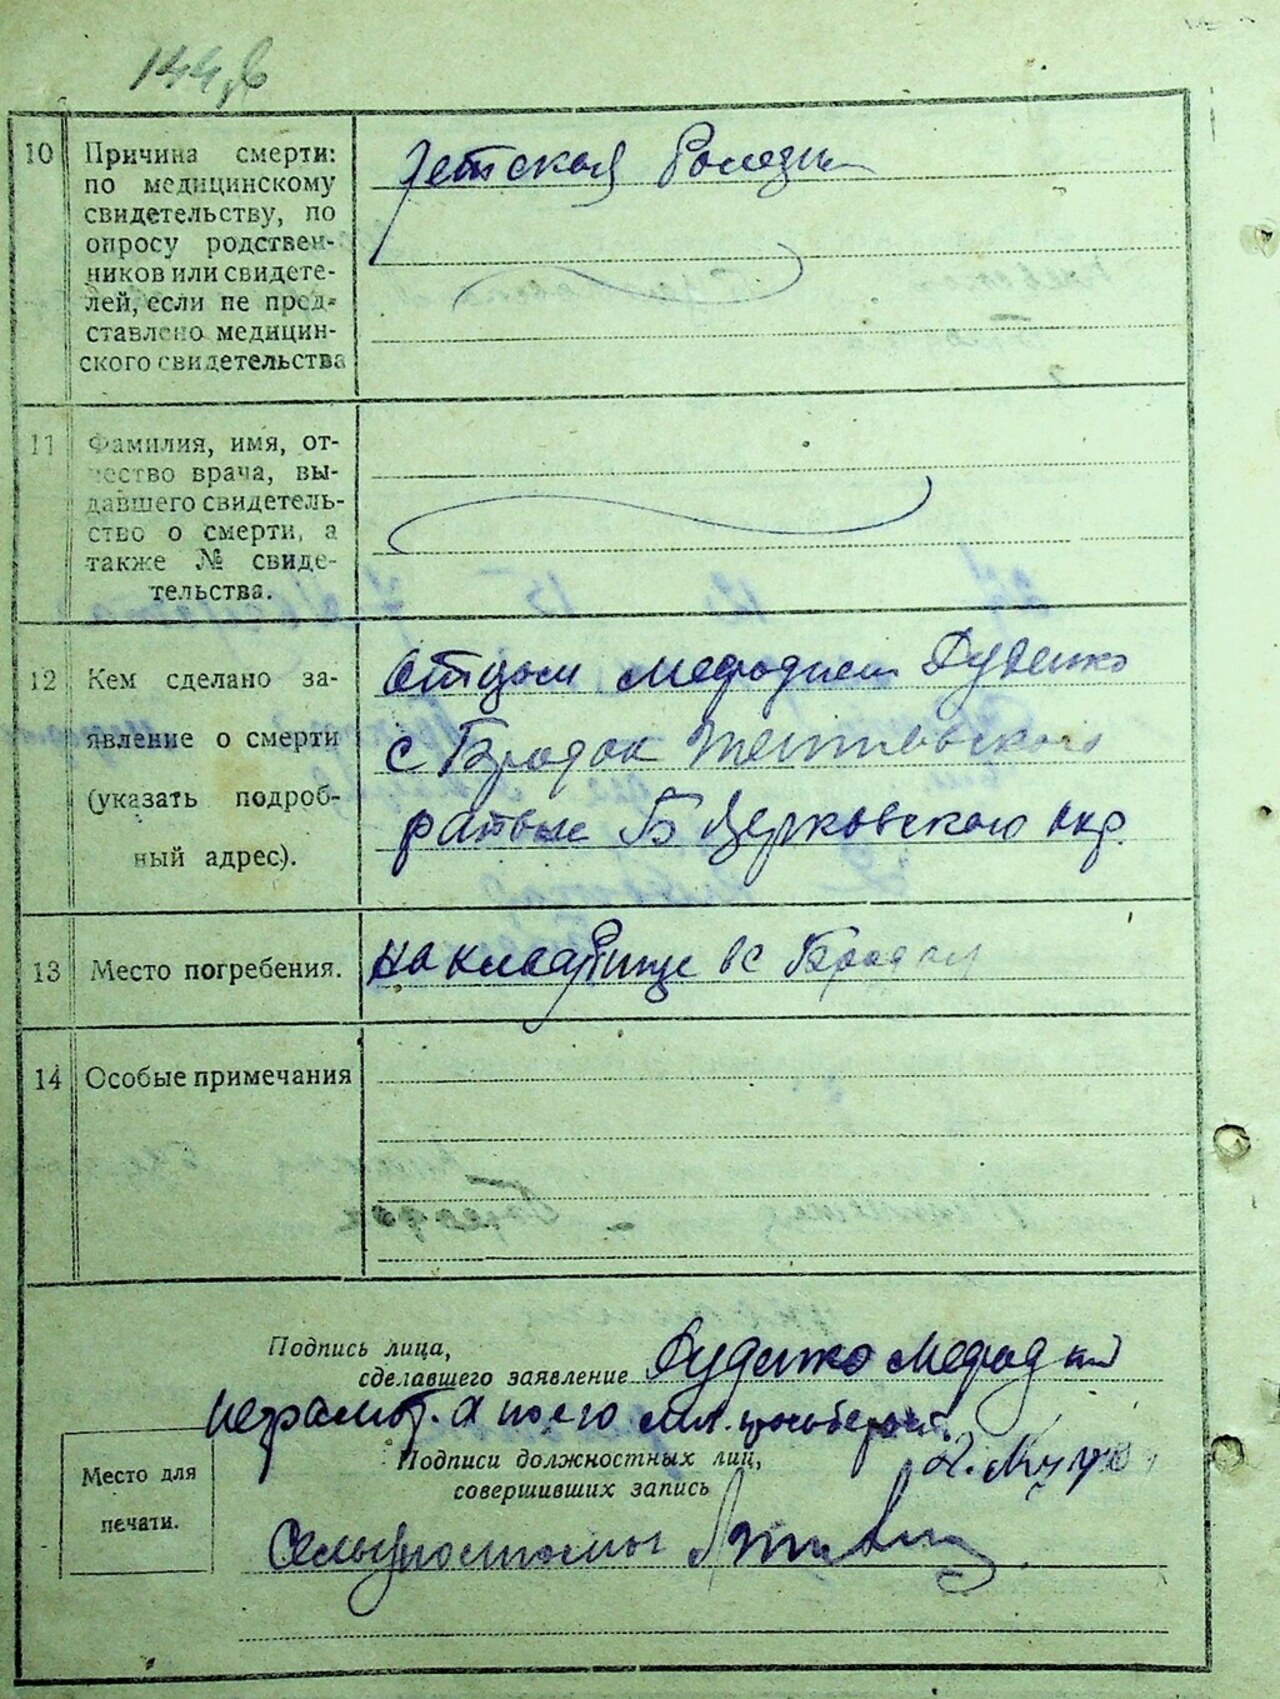 144
10 Причина смерти:
по медицинскому
свидетельству, по
опросу родствен-
ников или свидете-
лей, если не пред-
ставлено медицин-
ского свидетельства
Детская Болезнь
11 Фамилия, имя, от-
чество врача, вы-
давшего свидетель-
ство о смерти, а
также № свиде-
тельства.
12 Кем сделано за-
явление о смерти
(указать подроб-
ный адрес).
Отцом Мефодием Дуденко
с Городок
Б Церковского окр.
13 Место погребения.
на кладбище в с Городок
14 Особые примечания
Подпись лица,
сделавшего заявление Дуденко Мефодий
неграмот. а по его
Подписи должностных лиц,
совершивших запись
Место для
печати.